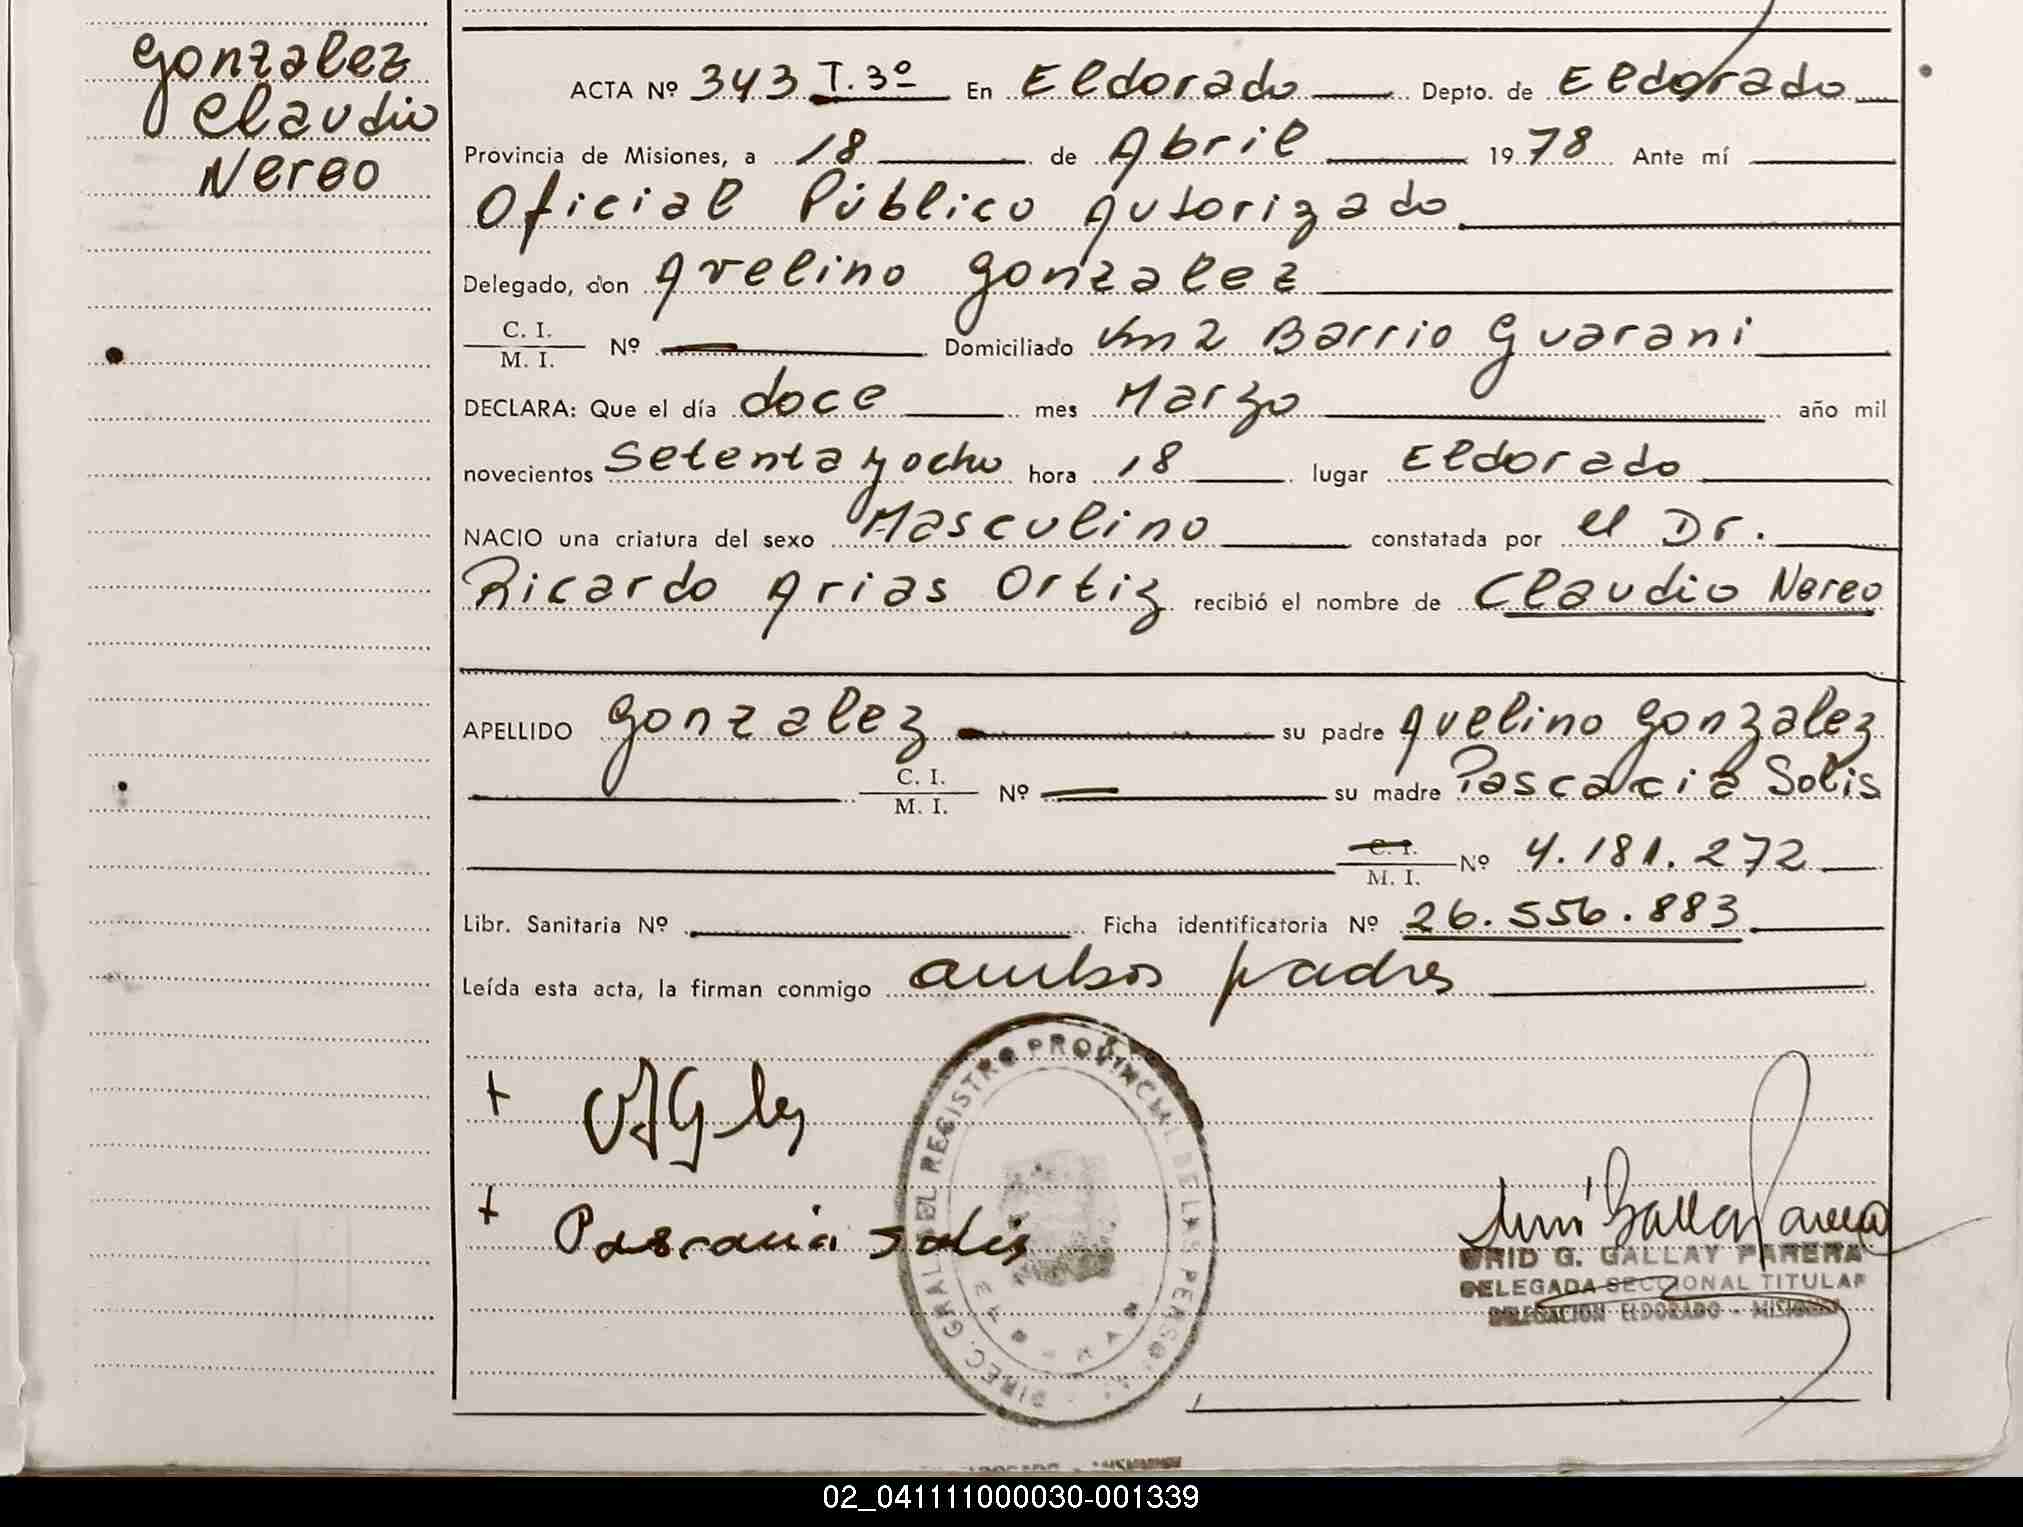 Gonzalez
Claudio
Nereo
ACTA Nº 343 T. 3º En Eldorado Depto. de Eldorado
Provincia de Misiones, a 18 de Abril 1978 Ante mí
Oficial Público Autorizado
Delegado, don Avelino Gonzalez
C. I.
M. I. Nº Domiciliado Km 2 Barrio Guarani
DECLARA: Que el día doce mes Marzo año mil
novecientos Setenta y ocho hora 18 lugar Eldorado
NACIO una criatura del sexo Masculino constatada por el Dr.
Ricardo Arias Ortiz recibió el nombre de Claudio Nereo
APELLIDO Gonzalez su padre Avelino Gonzalez
C. I.
M. I. Nº su madre Pascacia Solis
C. I.
M. I. Nº 4.181.272
Libr. Sanitaria Nº Ficha identificatoria Nº 26.556.883
Leída esta acta, la firman conmigo ambos padres
DIREC. GRAL. DEL REGISTRO PROVINCIAL DE LAS PERSO
Pascacia Solis
G. GALLAY PARERA
DELEGADA SECCIONAL TITULAR
DELEGACION ELDORADO - MISIONES
02_041111000030-001339